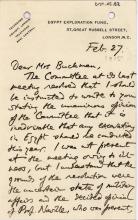 EGYPT EXPLORATION FUND,
37, GREAT RUSSELL STREET,
LONDON, W.C.
Feb. 27
Dear Mrs Buckman.
The Committee at its last
meeting resolved that I should
be instructed to write to you
stating the unanimous opinion
of the Committee that it is
inadvisable that any excavations
in Egypt should be conducted
this year. I was not present
at the meeting owing to ill-
ness, but I understand that the
ground of the resolution were
the uncertain state of military
affairs and the decided opinion
of Prof. Naville, who was present,